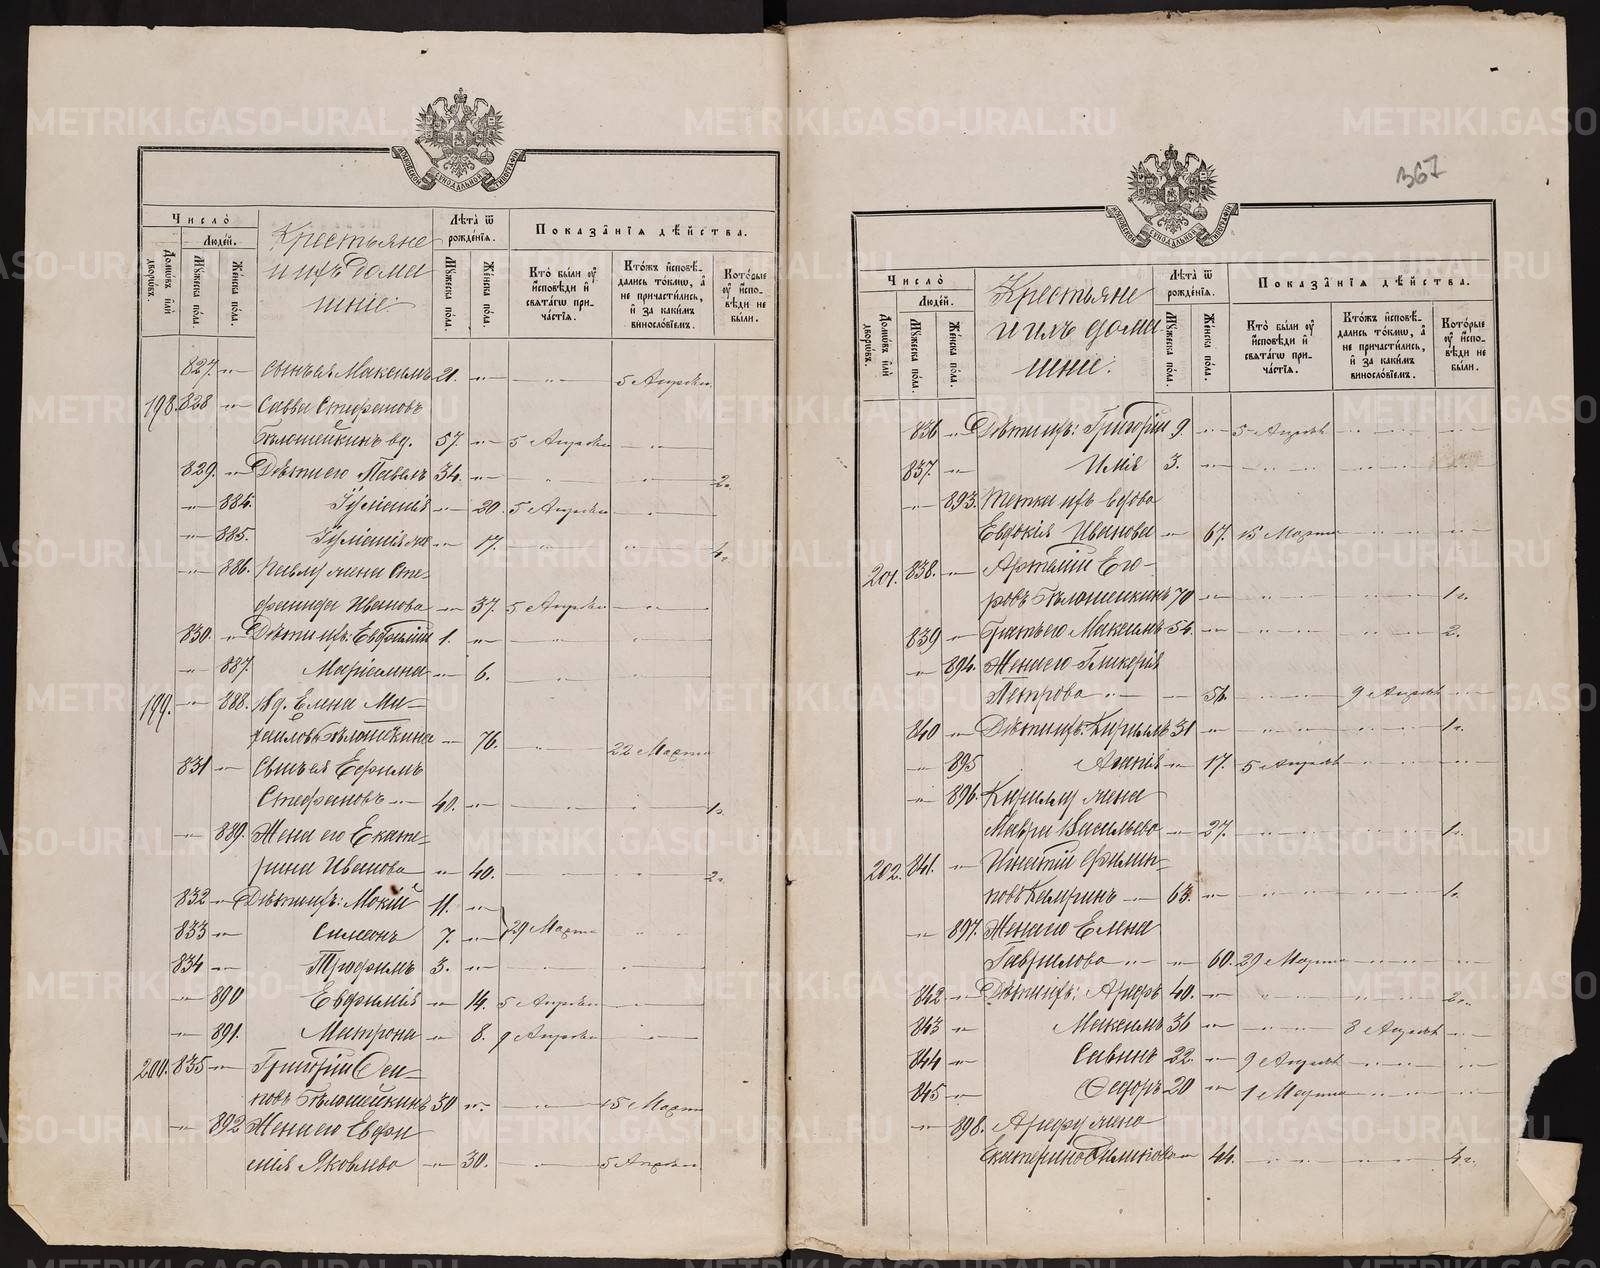 METRIKI.GASO-URAL.RU
МОСКОВСКОЙ СѴНОДАЛЬНОЙ ТИПОГРАФІИ
Число̀
Людей.
Домѡвъ илѝ дворѡвъ.
Мꙋжеска пола.
Женска пола.
Крестьяне
и ихъ Дома
шніе:
Лѣта̀ ѿ рожденїя.
Мꙋжеска пола.
Женска пола.
Показанїя дѣйства.
Кто̀ были ᲂу҆ исповѣди и свѧтагѡ причастїя.
Ктожъ исповѣдались токмѡ, а не причастились, и за какимъ винословїемъ.
Которые ᲂу҆ исповѣди не были.
827. -"- сынъ ея Максимъ 21. -"- -"- 5 Апрѣля
198. 828 -"- Савва Стефановъ
Бѣлошейкинъ вд. 57. -"- 5 Апрѣля -"-
829. -"- Дѣти его Павелъ 34. -"- -"- -"- 2.
-"- 884. Іуліанія -"- 20. 5 Апрѣля -"-
-"- 885. Іуліанія -"- 17. -"- -"-
-"- 886. Павлу жена Сте-
фанида Иванова -"- 37. 5 Апрѣля -"-
830. -"- Дѣти ихъ: Евфимій 1. -"- -"- -"-
-"- 887. Маріамна -"- 6. -"- -"-
199. -"- 888. Вд. Елена Ми-
хайлова Бѣлошейкина -"- 76. -"- 22 Марта
831 -"- Сынъ ея Ефимъ
Стефановъ -"- 40. -"- -"- -"- 1.
-"- 889. Жена его Екате-
рина Иванова -"- 40. -"- -"- 2.
832 -"- Дѣти ихъ: Мокій 11. -"-
833 -"- Симеонъ 7. -"- 29 Марта -"-
834 -"- Трофимъ 3. -"- -"- -"-
-"- 890 Евфимія -"- 14. 5 Апрѣля -"-
-"- 891. Матрона -"- 8. 9 Апрѣля -"-
200. 835 -"- Григорій Оси-
повъ Бѣлошейкинъ 30 -"- -"- 15 Марта
-"- 892 Жена его Евфи
мія Яковлева -"- 30. -"- 5 Апрѣля
367
МОСКОВСКОЙ СѴНОДАЛЬНОЙ ТИПОГРАФІИ
Число̀
Людей.
Домѡвъ илѝ дворѡвъ.
Мꙋжеска пола.
Женска пола.
Крестьяне
и ихъ дома
шніе:
Лѣта̀ ѿ рожденїя.
Мꙋжеска пола.
Женска пола.
Показанїя дѣйства.
Кто̀ были ᲂу҆ исповѣди и свѧтагѡ причастїя.
Ктожъ исповѣдались токмѡ, а не причастились, и за какимъ винословїемъ.
Которые ᲂу҆ исповѣди не были.
836 -"- Дѣти ихъ: Григорій 9. -"- 5 Апрѣля -"- -"-
837. -"- Илія 3. -"- -"- -"- -"-
-"- 893. Тетка ихъ вдова
Евдокія Иванова -"- 67. 15 Марта -"- -"-
201. 838. -"- Артемій Его-
ровъ Бѣлошейкинъ 70 -"- -"- -"- 1.
839 -"- Братъ его Максимъ 54. -"- -"- -"- 2.
-"- 894. Жена его Гликерія
Петрова -"- -"- 52. -"- 9 Апрѣля -"-
840 -"- Дѣти ихъ: Кириллъ 31 -"- -"- -"- 1.
-"- 895 Агапія -"- 17. 5 Апрѣля -"- -"-
-"- 896. Кириллу жена
Мавра Васильева -"- 27. -"- -"- 1.
202. 841. -"- Игнатій Филип-
повъ 63. -"- -"- -"- 1.
-"- 897. Жена его Елена
Гаврилова -"- -"- 60. 29 Марта -"- -"-
842 -"- Дѣти ихъ: 40. -"- -"- -"- 2.
843 -"- Максимъ 36 -"- -"- 8 Апрѣля -"-
844 -"- Савинъ 22. -"- 9 Апрѣля -"- -"-
845 -"- Ѳедоръ 20 -"- 1 Марта -"- -"-
-"- 898. жена
Екатерина 44. -"- -"-